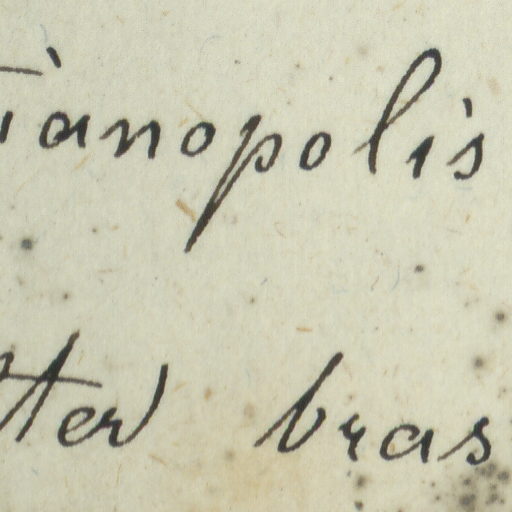 ianopolis
tter bras